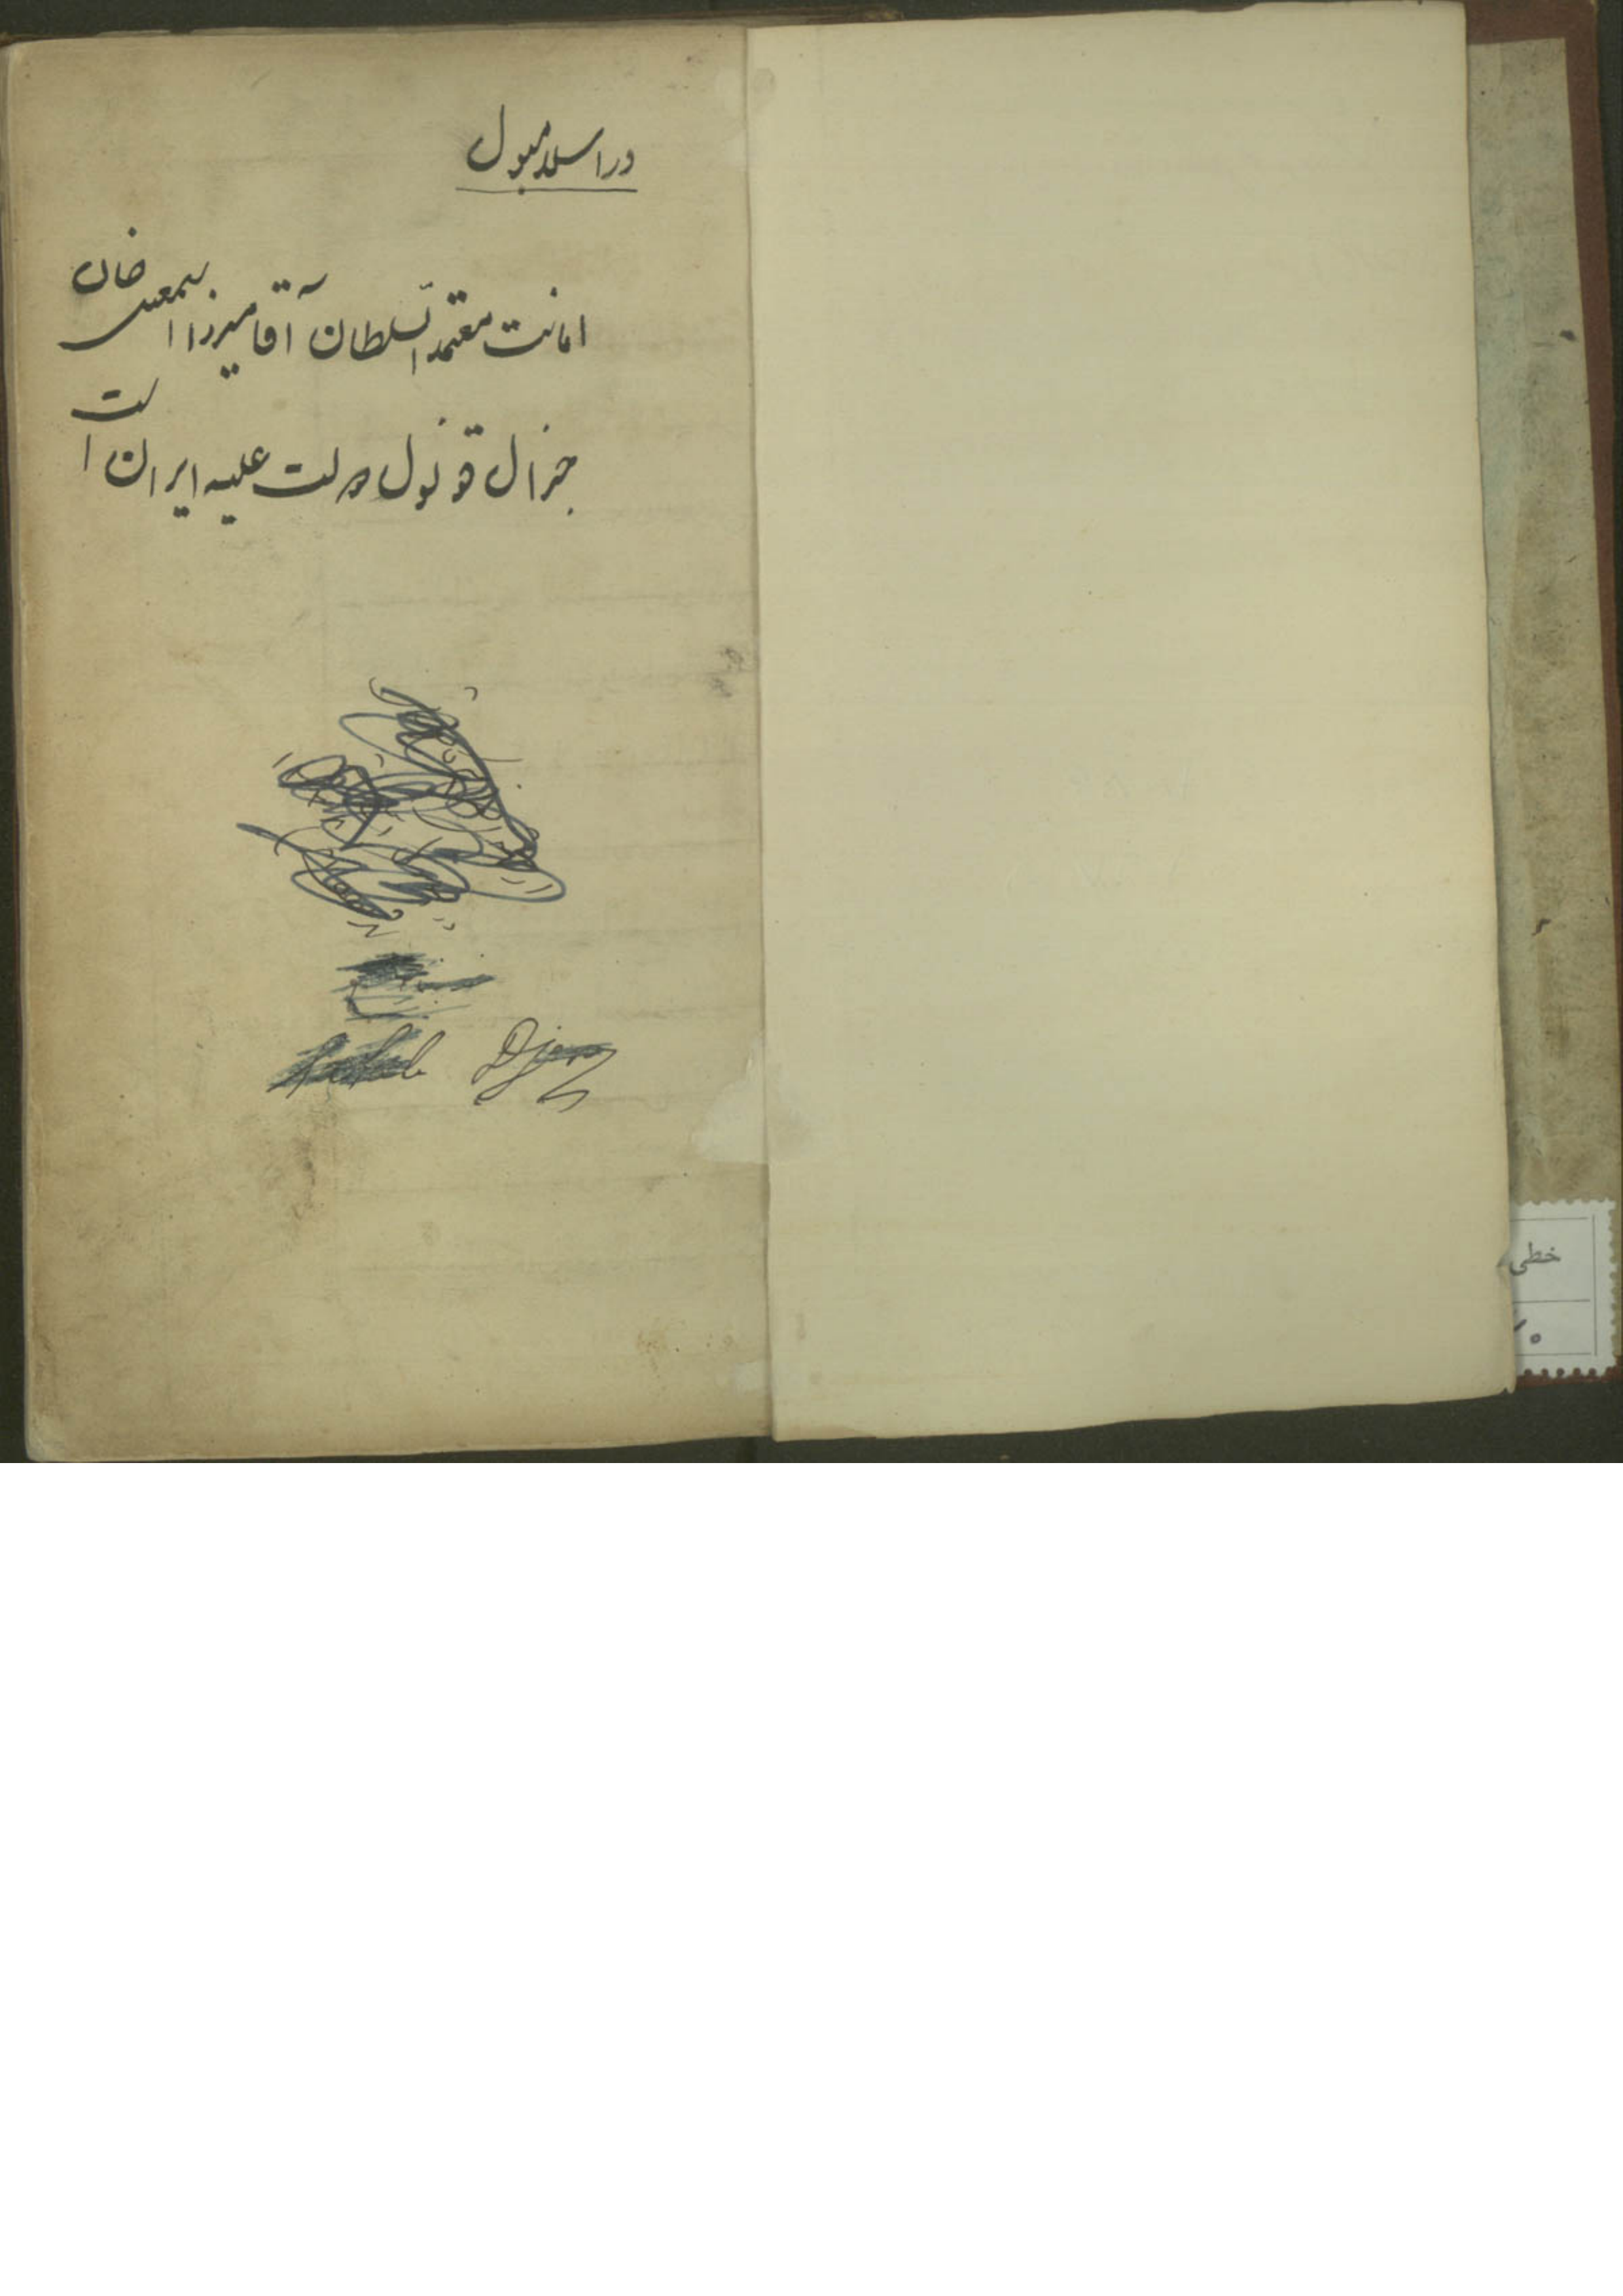 در اسلامبول
امانت معتمد السلطان آقا میرزا اسمعیل خان
جنرال قونسول دولت علیه ایران است
Djen
خطی